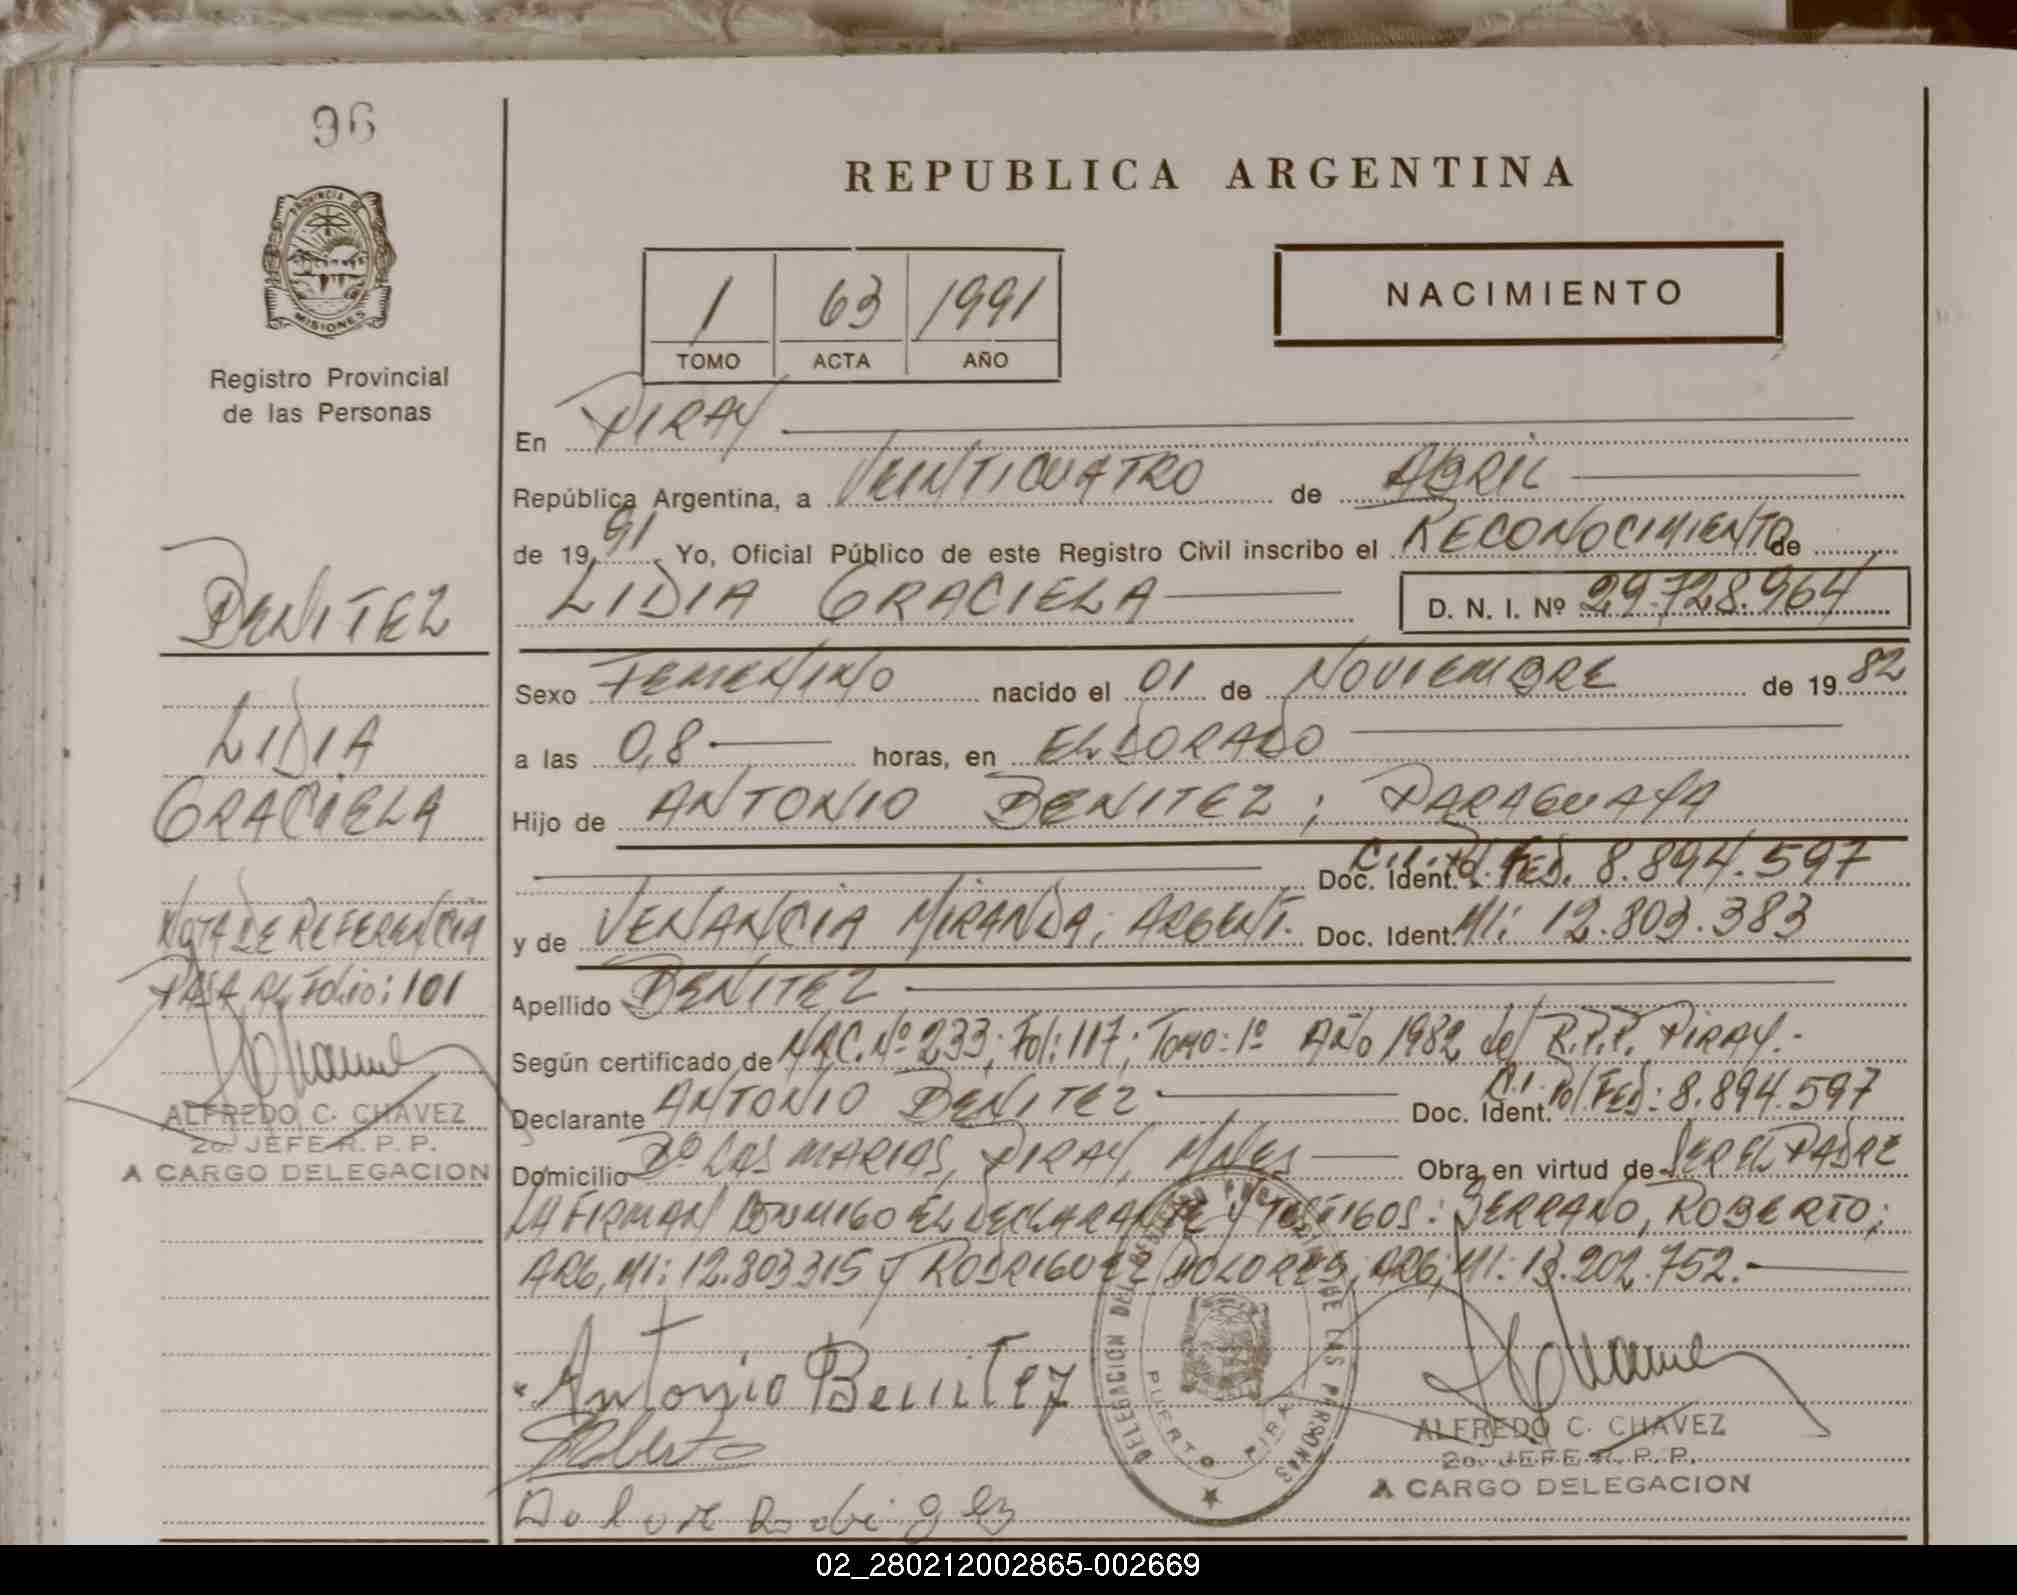 96
PROVINCIA DE
MISIONES
Registro Provincial
de las Personas
BENITEZ
LIDIA
GRACIELA
NOTA DE REFERENCIA
PASA AL FOLIO: 101
ALFREDO C. CHAVEZ
2o. JEFE R. P. P.
A CARGO DELEGACION
REPUBLICA ARGENTINA
1 63 1991
TOMO ACTA AÑO
NACIMIENTO
En PIRAY
República Argentina, a VEINTICUATRO de ABRIL
de 19 91 Yo, Oficial Público de este Registro Civil inscribo el RECONOCIMIENTO de
LIDIA GRACIELA D. N. I. Nº 29.728.964
Sexo FEMENINO nacido el 01 de NOVIEMBRE de 19 82
a las 0,8 horas, en ELDORADO
Hijo de ANTONIO BENITEZ; PARAGUAYA
Doc. Ident. C.I. Pol. FED. 8.894.597
y de VENANCIA MIRANDA; ARGENT. Doc. Ident. MI: 12.803.383
Apellido BENITEZ
Según certificado de NAC. Nº 233; Fol: 117; Tomo: 1º AÑO 1982 del R.P.P. PIRAY.-
Declarante ANTONIO BENITEZ Doc. Ident. C.I. Pol FED: 8.894.597
Domicilio Bº LAS MARIAS, PIRAY, Mnes Obra en virtud de SER EL PADRE
LA FIRMAN CONMIGO EL DECLARANTE Y TESTIGOS: SERRANO, ROBERTO;
ARG, MI: 12.803315 Y RODRIGUEZ DOLORES; ARG; MI: 13.202.752.-
Antonio Benitez
DELEGACION DEL REGISTRO PROVINCIAL DE LAS PERSONAS
PUERTO PIRAY
ALFREDO C. CHAVEZ
2o. JEFE R. P. P.
A CARGO DELEGACION
02_280212002865-002669